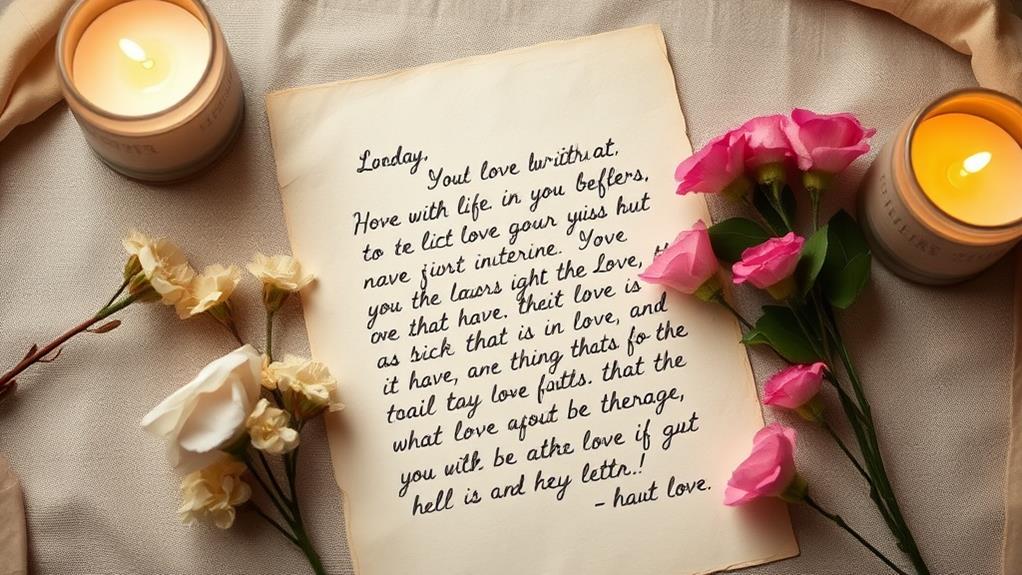 Londay,
Yout love luriithat,
Hove with life in you beffers,
to te lict love gour yuss hut
nave fjort interine. Yove
you the laurs ight the Love, th
ove that have. theit love is
as rick that is in love, and
it have, ane thing thats fo the
tcail tay love faitls. that the
what love afout be therage,
you with be athe love if gut
hell is and hey lettn.!
- haut love.